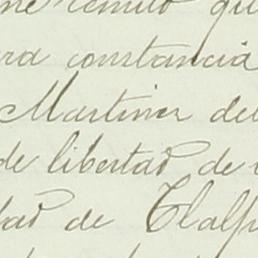 me remito que
ra constancia
Martinez del
de libertad de
dad de Tlalp